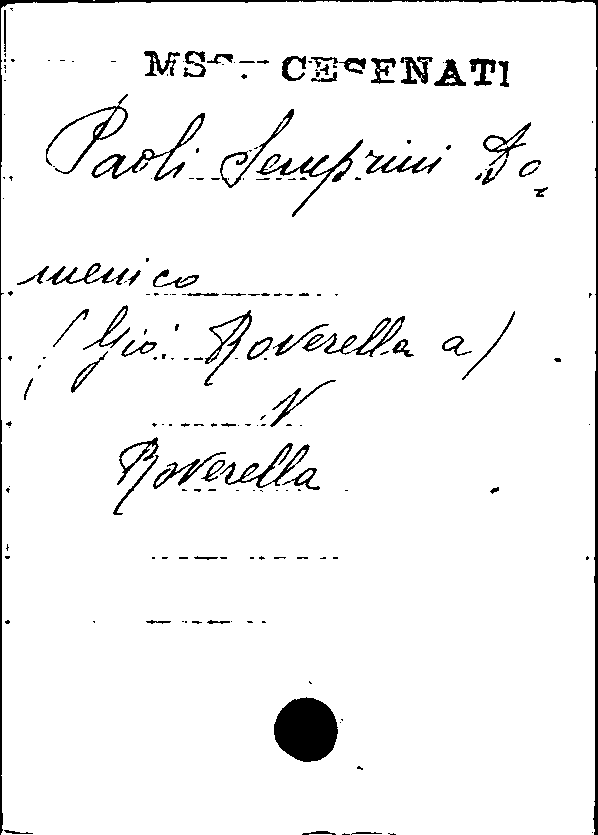 MSS. CESENATI
Paoli Semprini Do-
menico
(Gio. Roverella a)
V
Roverella